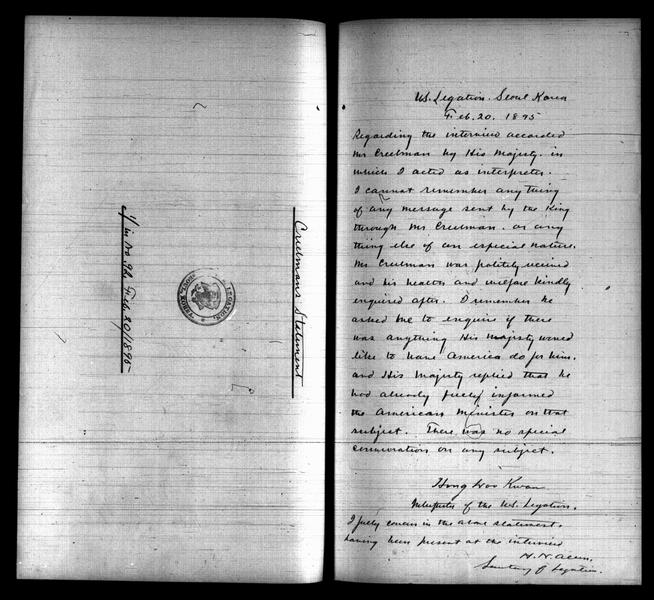 Creelmans Statement
LEGATION
SEOUL, KOREA
in No 92 Feb. 20/1895
U.S. Legation. Seoul Korea
Feb. 20. 1895
Regarding the interview accorded
Mr Creelman by His Majesty. in
which I acted as interpreter.
I cannot remember any thing
of any message sent by the King
through Mr Creelman. or any
thing else of an especial nature.
Mr Creelman was politely received
and his health and welfare kindly
enquired after. I remember he
asked me to enquire if there
was anything His Majesty would
like to have America do for him.
and His Majesty replied that he
had already fully informed
the American Minister on that
subject. There was no special
conversation on any subject.
Hong Woo Kwan
Interpreter of the U.S. Legation.
I fully concur in the above statement.
having been present at the interview
H. N. Allen,
Secretary of Legation.